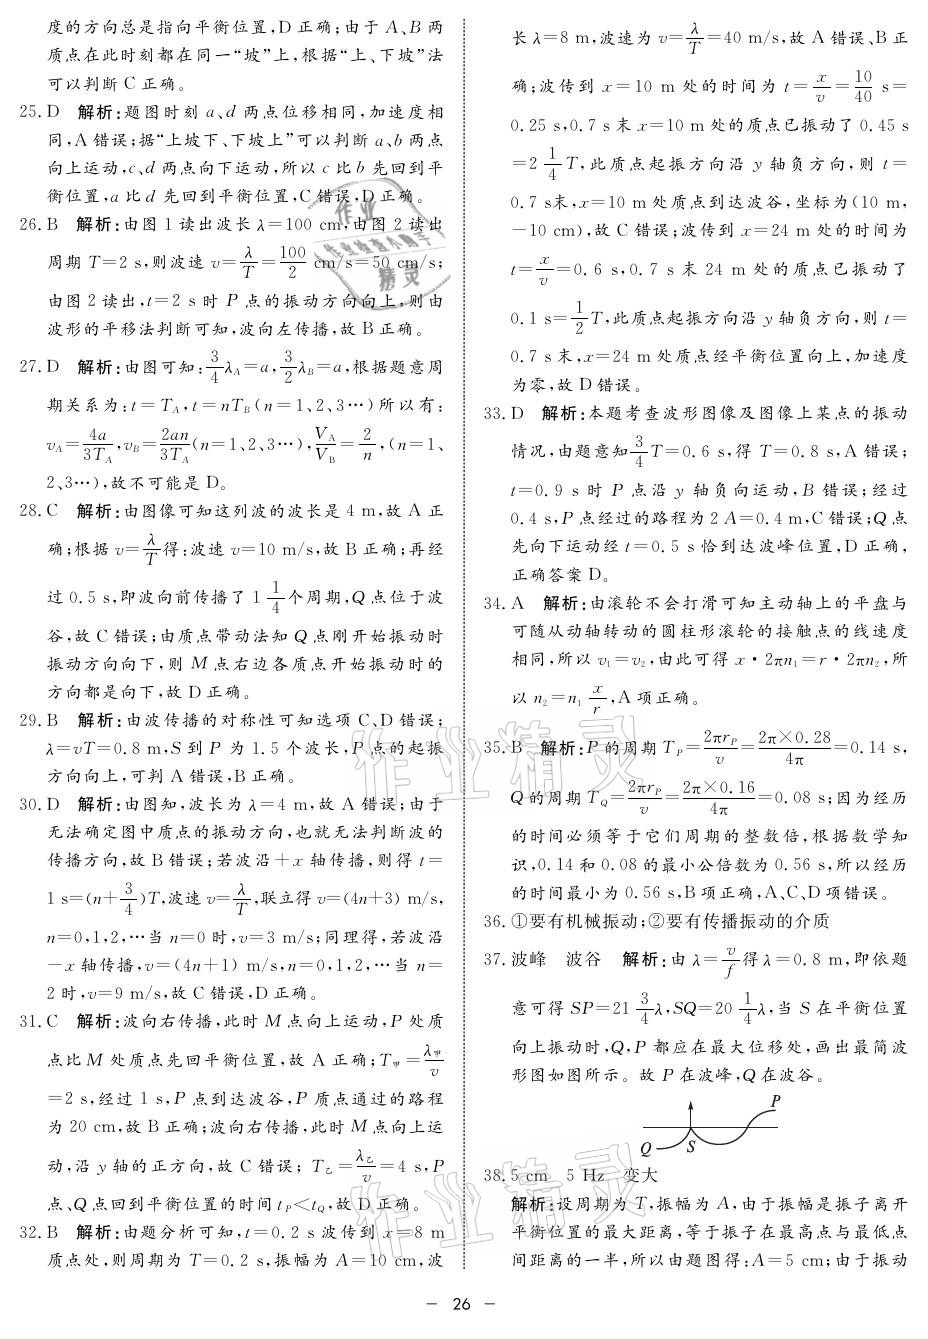 度的方向总是指向平衡位置,D正确;由于A、B两
质点在此时刻都在同一“坡”上,根据“上、下坡”法
可以判断C正确。
25. D 解析:题图时刻a、d两点位移相同,加速度相
同,A错误;据“上坡下、下坡上”可以判断a、b两点
向上运动,c、d两点向下运动,所以c比b先回到平
衡位置,a比d先回到平衡位置,C错误,D正确。
26. B 解析:由图1读出波长λ=100 cm,由图2读出
周期T=2 s,则波速v=λ/T=100/2 cm/s=50 cm/s;
由图2读出,t=2 s时P点的振动方向向上,则由
波形的平移法判断可知,波向左传播,故B正确。
27. D 解析:由图可知:3/4λA=a,3/2λB=a,根据题意周
期关系为:t=TA,t=nTB(n=1、2、3…)所以有:
vA=4a/3TA,vB=2an/3TA(n=1、2、3…),VA/VB=2/n,(n=1、
2、3…),故不可能是D。
28. C 解析:由图像可知这列波的波长是4 m,故A正
确;根据v=λ/T得:波速v=10 m/s,故B正确;再经
过0.5 s,即波向前传播了1 1/4个周期,Q点位于波
谷,故C错误;由质点带动法知Q点刚开始振动时
振动方向向下,则M点右边各质点开始振动时的
方向都是向下,故D正确。
29. B 解析:由波传播的对称性可知选项C、D错误;
λ=vT=0.8 m,S到P为1.5个波长,P点的起振
方向向上,可判A错误,B正确。
30. D 解析:由图知,波长为λ=4 m,故A错误;由于
无法确定图中质点的振动方向,也就无法判断波的
传播方向,故B错误;若波沿+x轴传播,则得t=
1 s=(n+3/4)T,波速v=λ/T,联立得v=(4n+3) m/s,
n=0,1,2,…当n=0时,v=3 m/s;同理得,若波沿
-x轴传播,v=(4n+1) m/s,n=0,1,2,…当n=
2时,v=9 m/s,故C错误,D正确。
31. C 解析:波向右传播,此时M点向上运动,P处质
点比M处质点先回平衡位置,故A正确;T甲=λ甲/v
=2 s,经过1 s,P点到达波谷,P质点通过的路程
为20 cm,故B正确;波向右传播,此时M点向上运
动,沿y轴的正方向,故C错误;T乙=λ乙/v=4 s,P
点、Q点回到平衡位置的时间tP<tQ,故D正确。
32. B 解析:由题分析可知,t=0.2 s波传到x=8 m
质点处,则周期为T=0.2 s,振幅为A=10 cm,波
长λ=8 m,波速为v=λ/T=40 m/s,故A错误、B正
确;波传到x=10 m处的时间为t=x/v=10/40 s=
0.25 s,0.7 s末x=10 m处的质点已振动了0.45 s
=2 1/4T,此质点起振方向沿y轴负方向,则t=
0.7 s末,x=10 m处质点到达波谷,坐标为(10 m,
-10 cm),故C错误;波传到x=24 m处的时间为
t=x/v=0.6 s,0.7 s末24 m处的质点已振动了
0.1 s=1/2T,此质点起振方向沿y轴负方向,则t=
0.7 s末,x=24 m处质点经平衡位置向上,加速度
为零,故D错误。
33. D 解析:本题考查波形图像及图像上某点的振动
情况,由题意知3/4T=0.6 s,得T=0.8 s,A错误;
t=0.9 s时P点沿y轴负向运动,B错误;经过
0.4 s,P点经过的路程为2A=0.4 m,C错误;Q点
先向下运动经t=0.5 s恰到达波峰位置,D正确,
正确答案D。
34. A 解析:由滚轮不会打滑可知主动轴上的平盘与
可随从动轴转动的圆柱形滚轮的接触点的线速度
相同,所以v1=v2,由此可得x·2πn1=r·2πn2,所
以n2=n1 x/r,A项正确。
35. B 解析:P的周期TP=2πrP/v=2π×0.28/4π=0.14 s,
Q的周期TQ=2πrP/v=2π×0.16/4π=0.08 s;因为经历
的时间必须等于它们周期的整数倍,根据数学知
识,0.14和0.08的最小公倍数为0.56 s,所以经历
的时间最小为0.56 s,B项正确,A、C、D项错误。
36. ①要有机械振动;②要有传播振动的介质
37. 波峰 波谷 解析:由λ=v/f得λ=0.8 m,即依题
意可得SP=21 3/4λ,SQ=20 1/4λ,当S在平衡位置
向上振动时,Q,P都应在最大位移处,画出最简波
形图如图所示。故P在波峰,Q在波谷。
P
Q S
38. 5 cm 5 Hz 变大
解析:设周期为T,振幅为A,由于振幅是振子离开
平衡位置的最大距离,等于振子在最高点与最低点
间距离的一半,所以由题图得:A=5 cm;由于振动
- 26 -
作业精灵
作业精灵